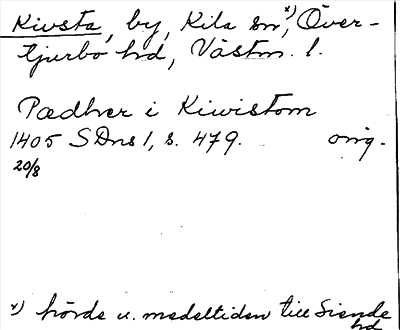 Kivsta, by, Kila sn, x) Över-
tjurbo hd, Västm. l.
Pædher i Kiwistom
1405 SDns 1, s. 479. orig.
20/8
x) hörde u. medeltiden till Siende
hd